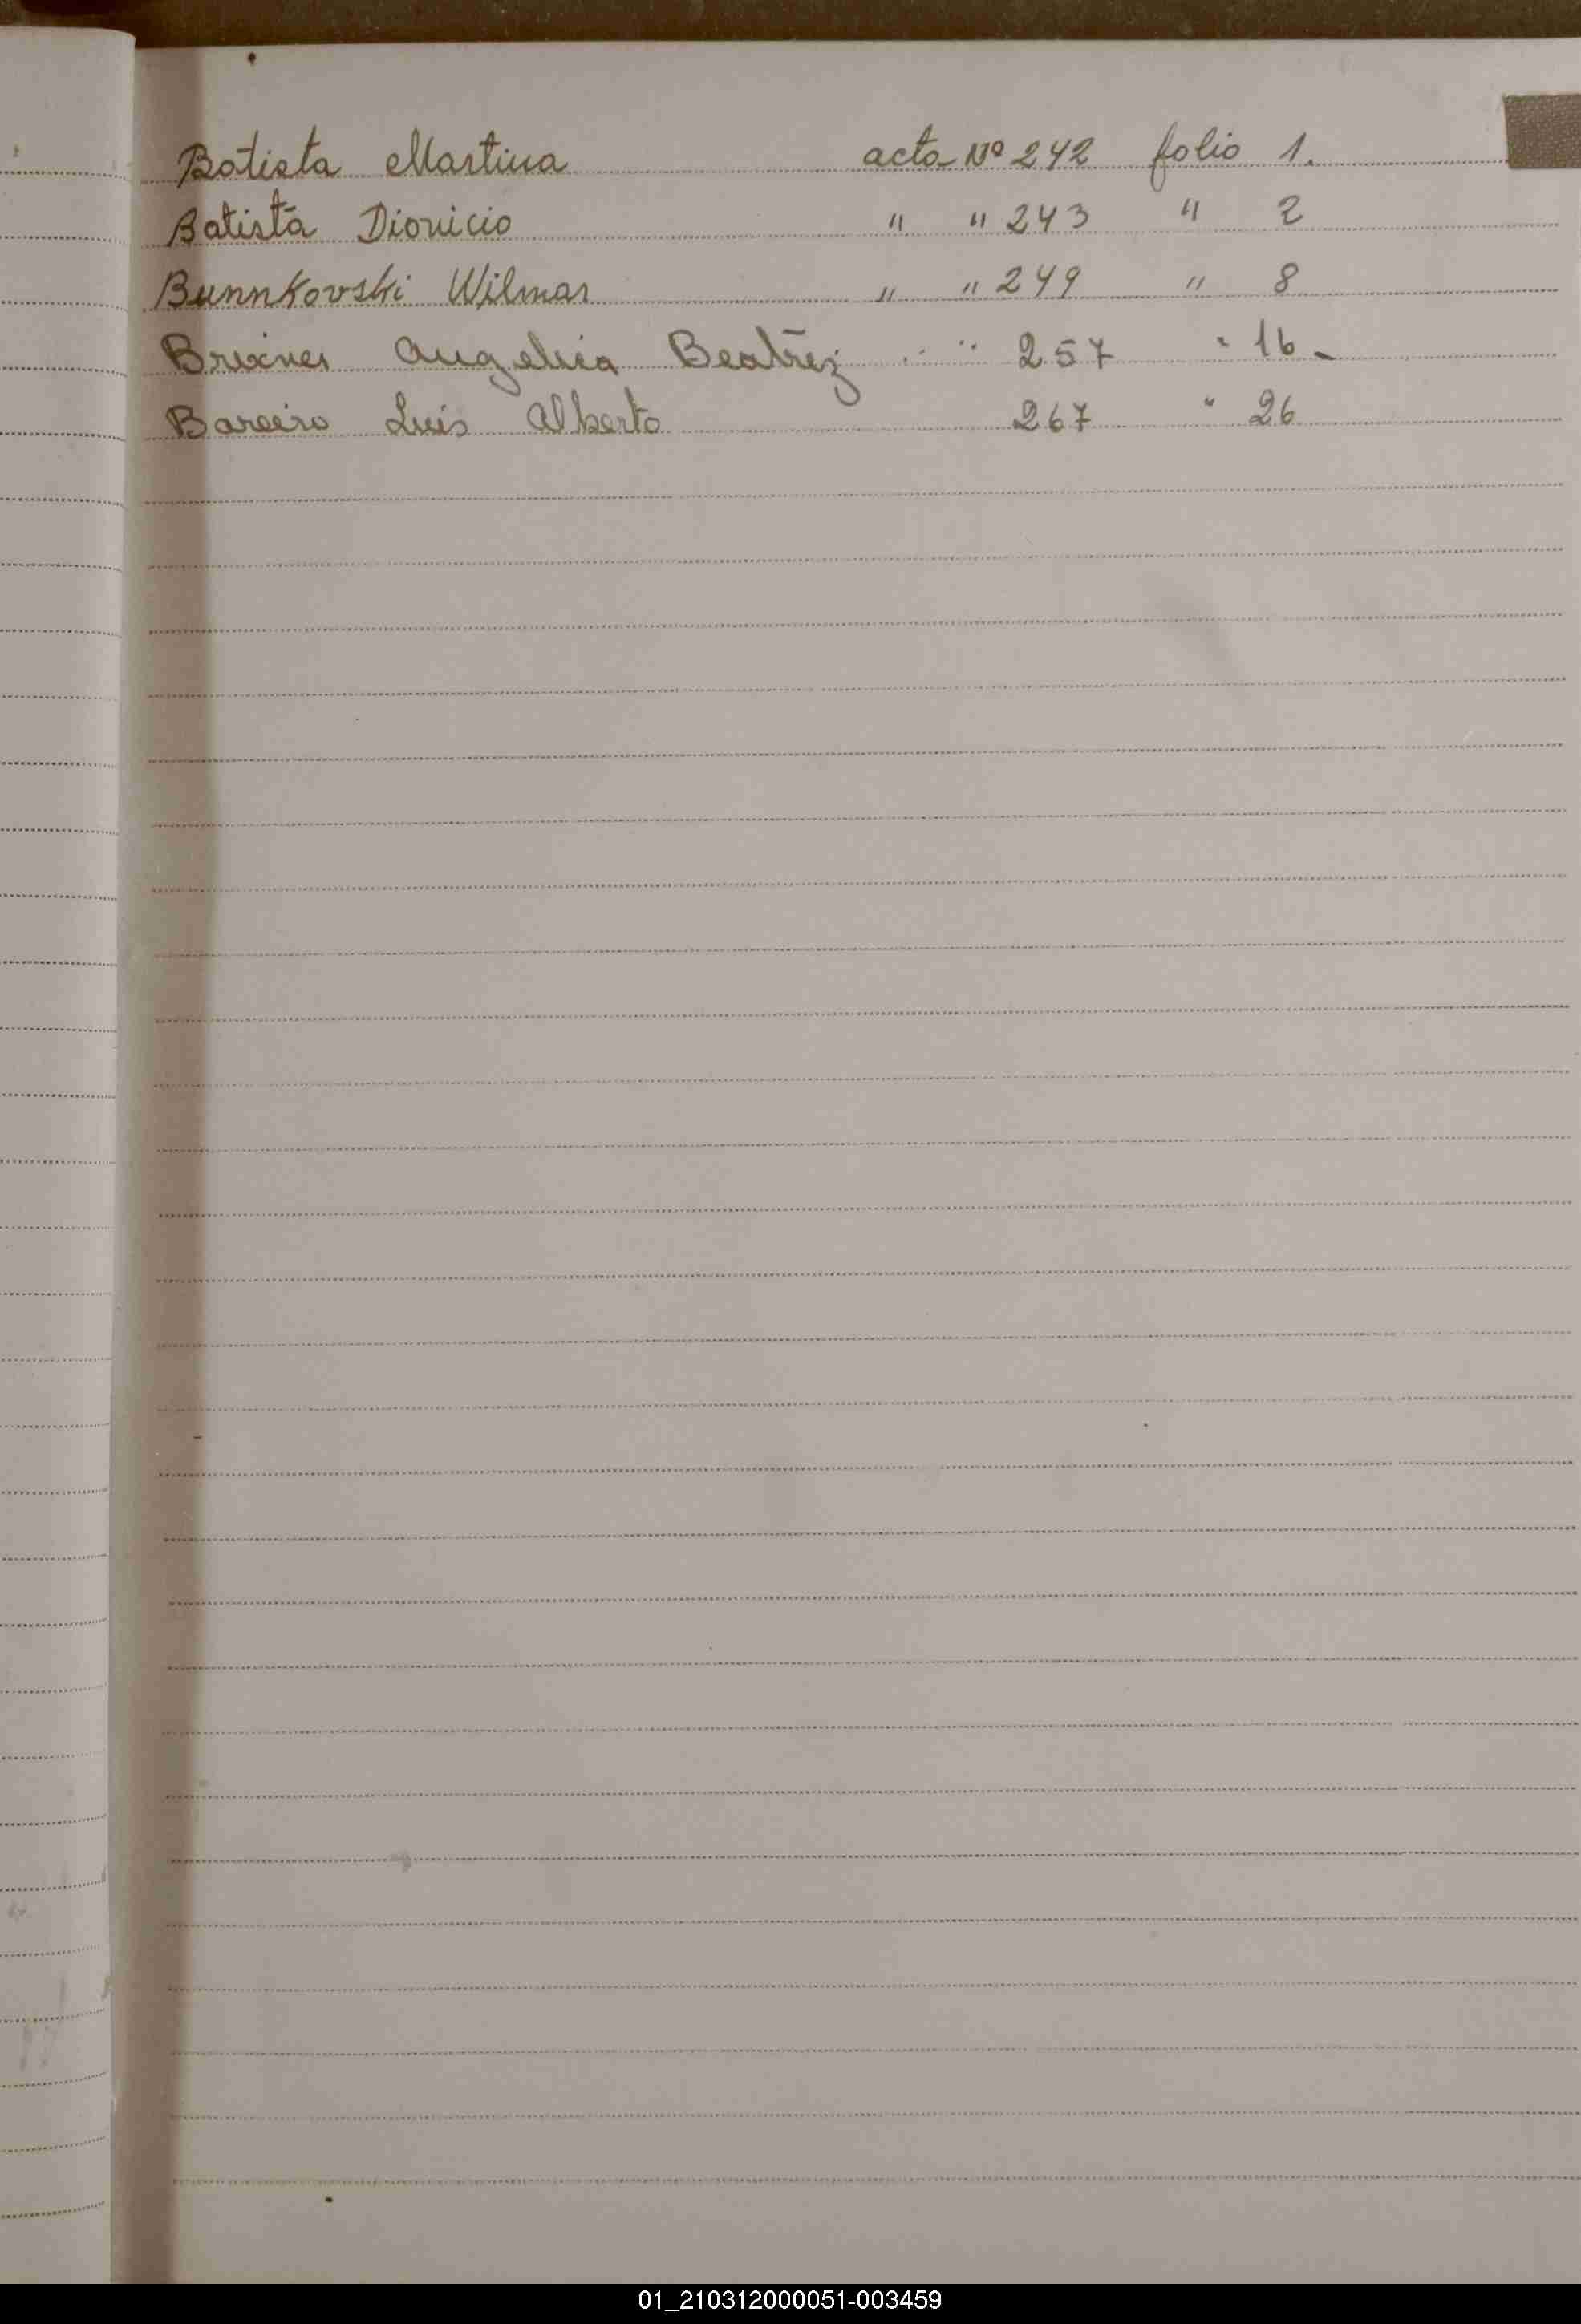 Batista Martina acta Nº 242 folio 1.
Batista Dionicio " " 243 " 2
Bunnkovski Wilmar " " 249 " 8
Brixner Angelica Beatriz " " 257 " 16-
Bareiro Luis Alberto 267 " 26
01_210312000051-003459